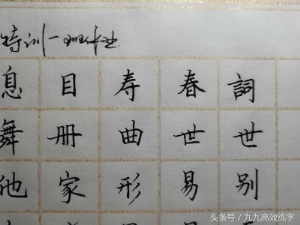 特训一
息目寿春詞
舞册曲世世
池家形易别
头条号／九九高效练字